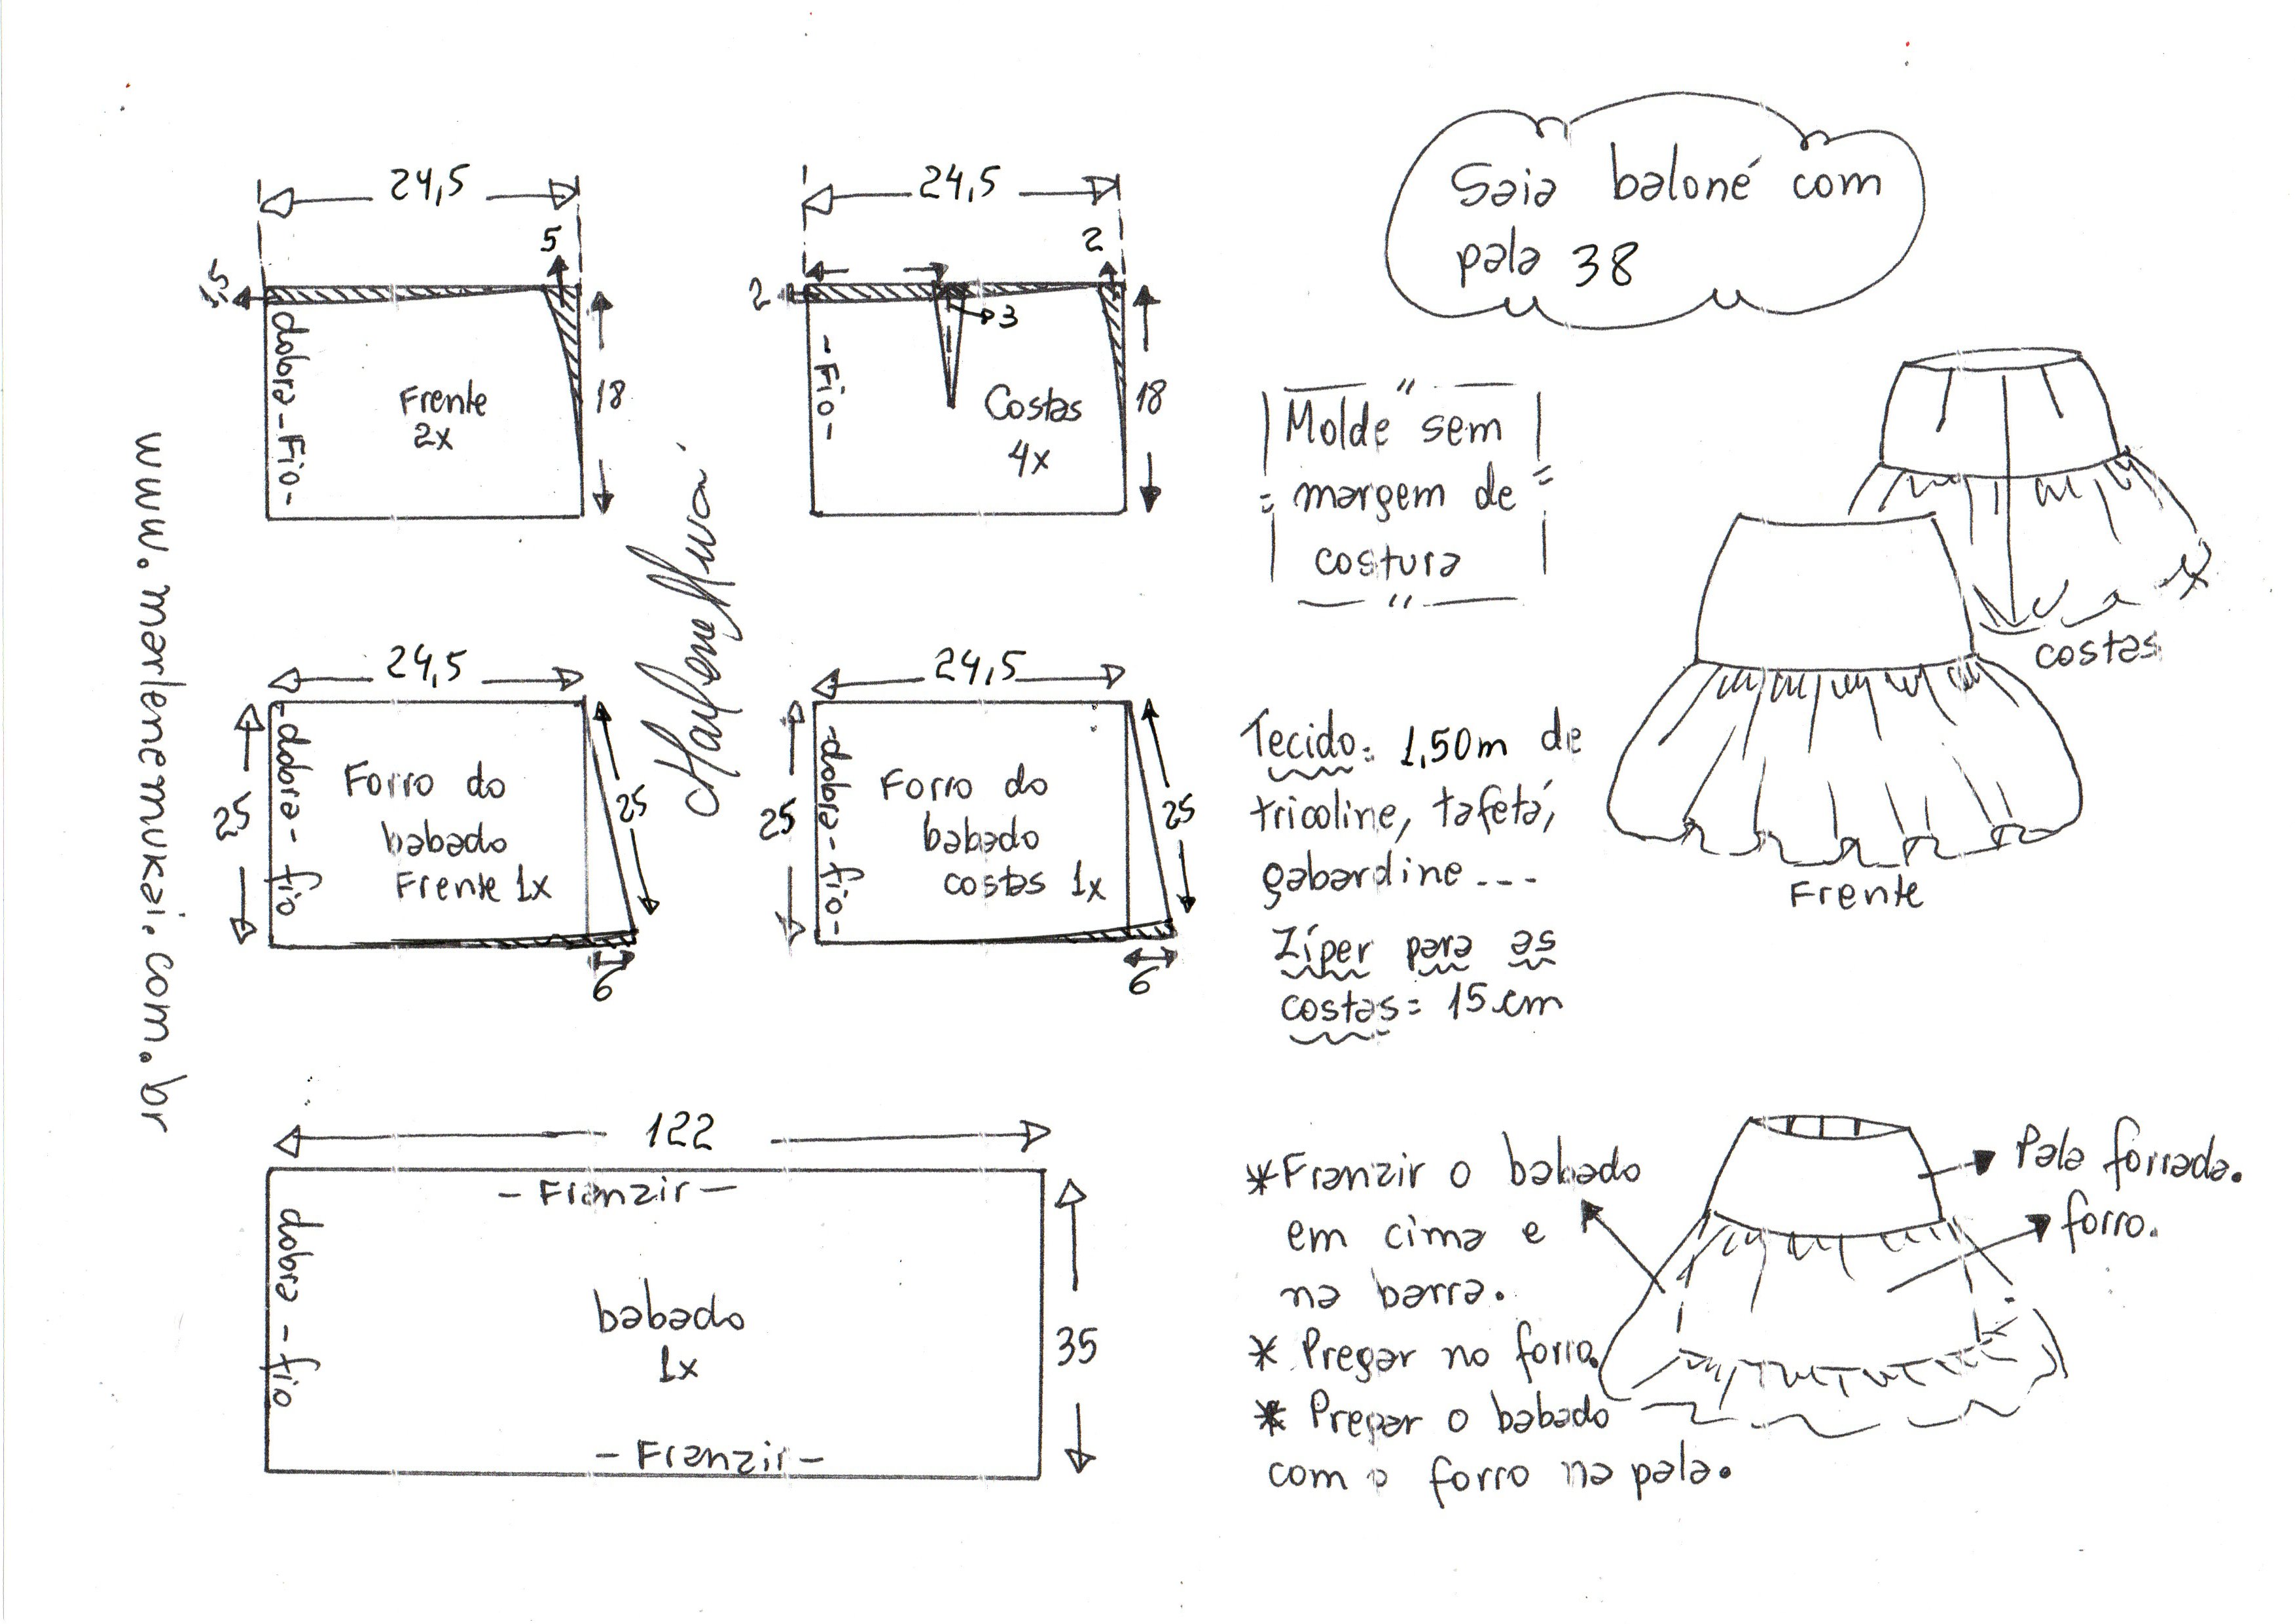 Saia baloné com
pala 38
24,5
5
1,5
dobra - Fio -
Frente
2x
18
24,5
2
2
3
- Fio -
Costas
4x
18
Molde sem
margem de
costura
costas
Frente
24,5
25
- dobra - fio
Forro do
babado
Frente 1x
25
6
24,5
25
- dobra - fio -
Forro do
babado
costas 1x
25
6
Tecido: 1,50m de
tricoline, tafetá,
gabardine ---
Zíper para as
costas = 15 cm
122
- Franzir -
dobra - fio
babado
1x
35
- Franzir -
* Franzir o babado
em cima e
na barra.
* Pregar no forro.
* Pregar o babado
com o forro na pala.
Pala forrada.
forro.
www.marlenemukai.com.br